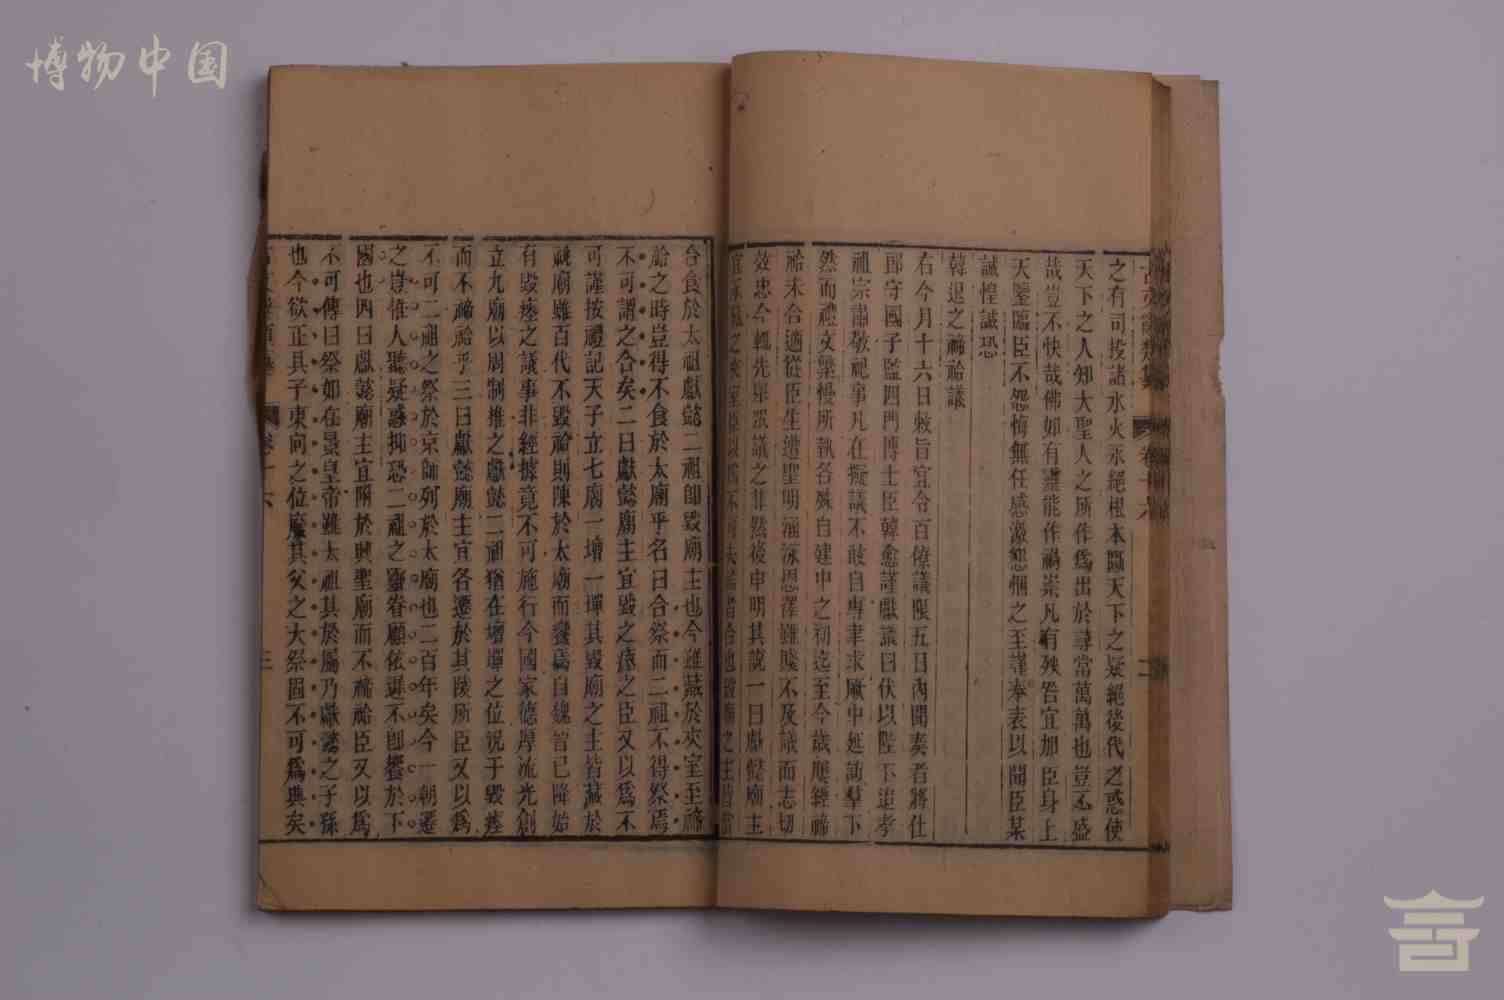 博物中国
之有司投諸水火永絕根本斷天下之疑絕後代之惑使
天下之人知大聖人之所作爲出於尋常萬萬也豈不盛
哉豈不快哉佛如有靈能作禍祟凡有殃咎宜加臣身上
天鑒臨臣不怨悔無任感激懇悃之至謹奉表以聞臣某
誠惶誠恐
韓退之禘祫議
右今月十六日敕旨宜令百僚議限五日內聞奏者將仕
郎守國子監四門博士臣韓愈謹獻議曰伏以陛下追孝
祖宗肅敬祀事凡在擬議不敢自專聿求厥中延訪羣下
然而禮文繁慢所執各殊自建中之初迄至今歲屢經禘
祫未合適從臣生遭聖明涵泳恩澤雖賤不及議而志切
效忠今輒先舉眾議之非然後申明其說一曰獻懿廟主
宜永藏之夾室臣以爲不可夫祫者合也毀廟之主皆當
合食於太祖獻懿二祖即毀廟主也今雖藏於夾室至禘
祫之時豈得不食於太廟乎名曰合祭而二祖不得祭焉
不可謂之合矣二曰獻懿廟主宜毀之瘞之臣又以爲不
可謹按禮記天子立七廟一壇一墠其毀廟之主皆藏於
祧廟雖百代不毀祫則陳於太廟而饗焉自魏晉已降始
有毀瘞之議事非經據竟不可施行今國家德厚流光創
立九廟以周制推之獻懿二祖猶在壇墠之位況于毀瘞
而不禘祫乎三曰獻懿廟主宜各遷於其陵所臣又以爲
不可二祖之祭於京師列於太廟也二百年矣今一朝遷
之豈惟人聽疑惑抑恐二祖之靈眷顧依遲不卽饗於下
國也四曰獻懿廟主宜附於興聖廟而不禘祫臣又以爲
不可傳曰祭如在景皇帝雖太祖其於屬乃獻懿之子孫
也今欲正其子東向之位廢其父之大祭固不可爲典矣
卷十六
三